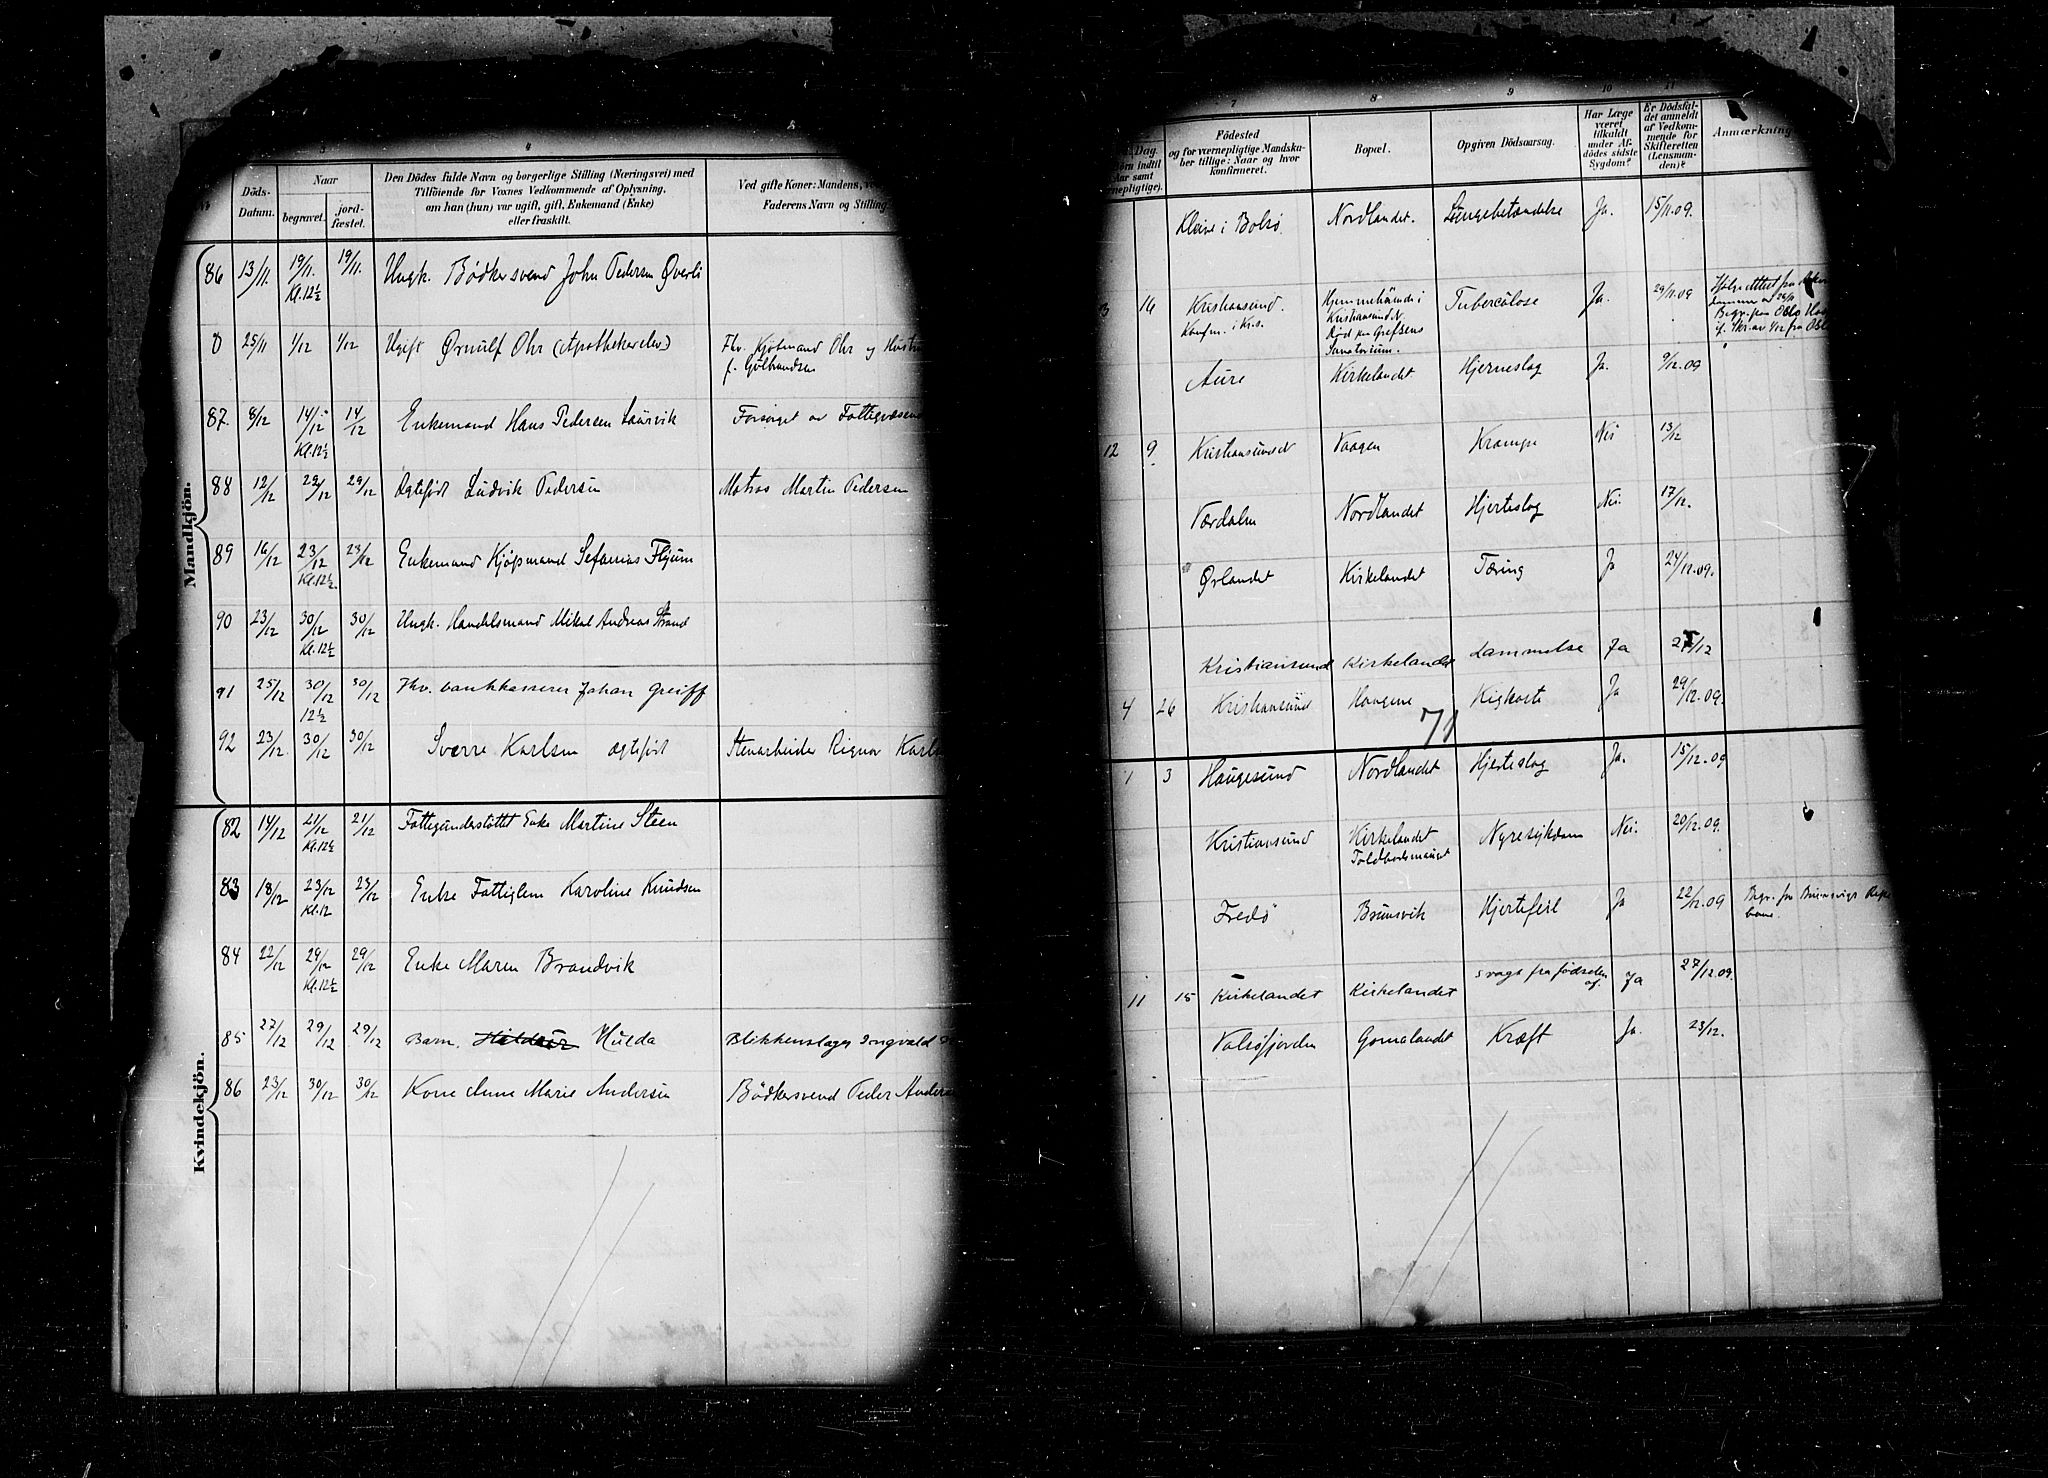 3 4
No
Döds-
Datum.
Naar
begravet.
jord-
fæstet.
Den Dödes fulde Navn og borgerlige Stilling (Næringsvei) med
Tilföiende for Voxnes Vedkommende af Oplysning,
om han (hun) var ugift, gift, Enkemand (Enke)
eller fraskilt.
Ved gifte Koner: Mandens,
Faderens Navn og Stilling
Mandkjön.
86 13/11. 19/11. 19/11. Ungk. Bødkersvend John Pedersen Øverli
Kl. 12½
0 25/11 1/12 1/12 Ugift Ørnulf Ohr (Apothekerelev) Fhv. Kjøbmand Ohr og Hustru
f. Gulbrandsen
87. 8/12 14/12 14/12 Enkemand Hans Pedersen Laurvik Forsørget av Fattigvæsen
Kl. 12½
88 12/12 29/12 29/12 Ægtefødt Ludvik Pedersen Matros Martin Pedersen
89 16/12 23/12 23/12 Enkemand Kjøpmand Sefanias Flyum
Kl. 12½.
90 23/12 30/12 30/12 Ungk. Handelsmand Mikal Andreas Strand
Kl. 12½
91 25/12 30/12 30/12 Fhv. bankkasserer Johan Greiff
12½
92 23/12 30/12 30/12 Sverre Karlsen ægtefødt Stenarbeider Karls
Kvindekjön.
82 14/12 21/12 21/12 Fattigunderstöttet Enke Martine Steen
Kl. 12½
83 18/12 23/12 23/12 Enke Fattiglem Karoline Knudsen
Kl. 12
84 22/12 29/12 29/12 Enke Maren Brandvik
Kl. 12½
85 27/12 29/12 29/12 Barn, Hulda Blikkenslager Ingvald
86 23/12 30/12 30/12 Kone Anne Marie Andersen Bødkersvend Peder Anders
7 8 9 10 11
Dag
Börn indtil
Aar samt
rnepligtige).
Födested
og for værnepligtige Mandska-
ber tillige: Naar og hvor
konfirmeret.
Bopæl.
Opgiven Dödsaarsag.
Har Læge
været
tilkaldt
under Af-
dödes sidste
Sygdom?
Er Dödsfal-
det anmeldt
af Vedkom-
mende for
Skifteretten
(Lensman-
den)?
Anmærkning
Kleive i Bolsø Nordlandet. Lungebetændelse Ja. 15/11.09.
3 16 Kristiansund. Hjemmehørende i Tuberculose Ja. 29/11.09
Konfm. i Kr.s. Kristiansund N.
Død paa Grefsens
Sanatorium.
Aure Kirkelandet Hjerneslag Ja. 9/12.09
12 9 Kristiansund N Vaagen Krampe Nei 13/12
Værdalen Nordlandet Hjerteslag Nei. 17/12.
Ørlandet Kirkelandet Tæring Ja 24/12.09.
Kristiansund Kirkelandet Lammelse Ja 27/12
4 26 Kristiansund Haugene Kighoste Ja 29/12.09.
71
1 3 Haugesund Nordlandet Hjerteslag Ja. 15/12.09
Kristiansund Kirkelandet Nyresykdom Nei. 20/12.09.
Fredø Brunsvik Hjertefeil Ja 22/12.09 Begr. fra Brunsvigs
bane.
11 15 Kirkelandet Kirkelandet svag fra fødselen Ja 27/12.09.
af.
Valsøfjorden Gomalandet Kræft Ja. 23/12.